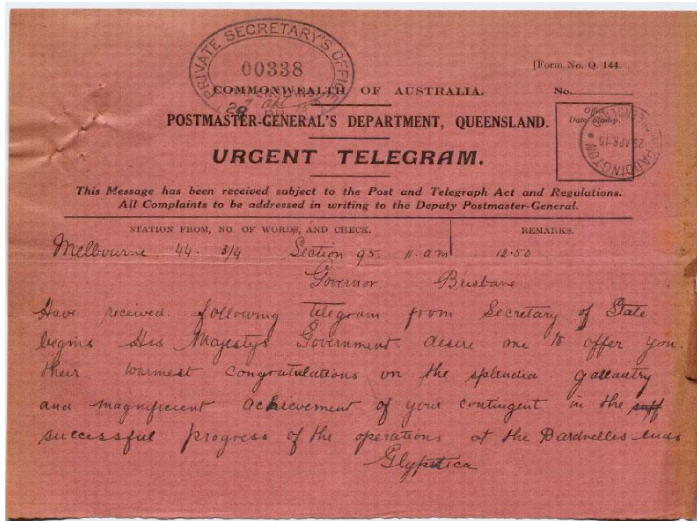 PRIVATE SECRETARY'S OFFICE
00338
[Form No. Q. 144.
COMMONWEALTH OF AUSTRALIA.
No.
POSTMASTER-GENERAL'S DEPARTMENT, QUEENSLAND.
Office Date Stamp.
PADDINGTON
29 APR 15
URGENT TELEGRAM.
This Message has been received subject to the Post and Telegraph Act and Regulations.
All Complaints to be addressed in writing to the Deputy Postmaster-General.
STATION FROM, NO. OF WORDS, AND CHECK. REMARKS.
Melbourne 44. 3/4 Section 95 11 am 12.50
Governor Brisbane
Have received following telegram from Secretary of State
begins His Majestys Government desire me to offer you
their warmest congratulations on the splendid gallantry
and magnificent achievement of your contingent in the
successful progress of the operations at the Dardnelles ends
Glypstica